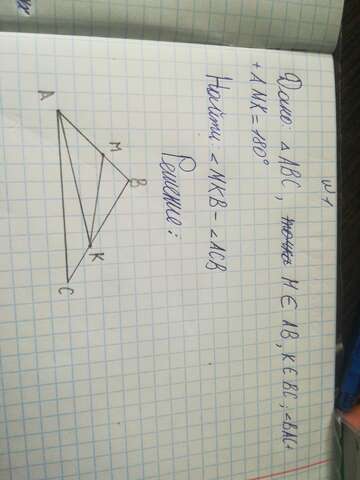 №1
Дано: △ABC, точка M ∈ AB, K ∈ BC, ∠BAC+
+ AMK = 180°
Найти: ∠MKB - ∠ACB
Решение:
A
M
B
K
C